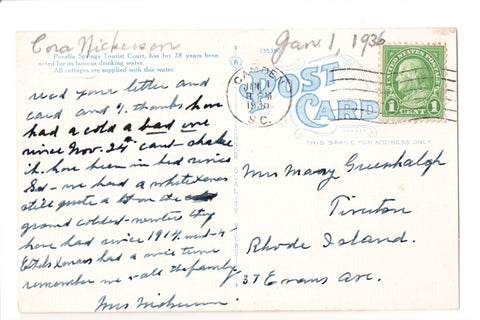 Cora Nickerson
Jan. 1, 1936
Pocalla Springs Tourist Court, has for 28 years been
noted for its famous drinking water.
All cottages are supplied with this water
recd your letter and
card and thanks have
had a cold a bad one
since Nov. 24th cant shake
it. have been in bed since
Sat - we had a white Xmas
still quite a bit on the
ground coldest winter they
have had since 1914.
had a nice time
remember me to all the family
Mrs Nickerson
POST
CARD
THIS SPACE FOR ADDRESS ONLY
CAMDEN
JAN 1
1936
S.C.
UNITED STATES POSTAGE
1 1
CENT
Mrs Mary Greenhalgh
Tiverton
Rhode Island.
37 Evans Ave.